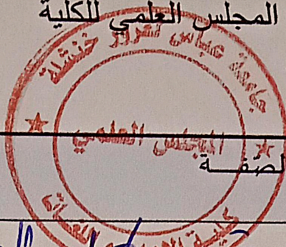 المجلس العلمي للكلية
جامعة عباس لغرور خنشلة
المجلس العلمي
الصفة